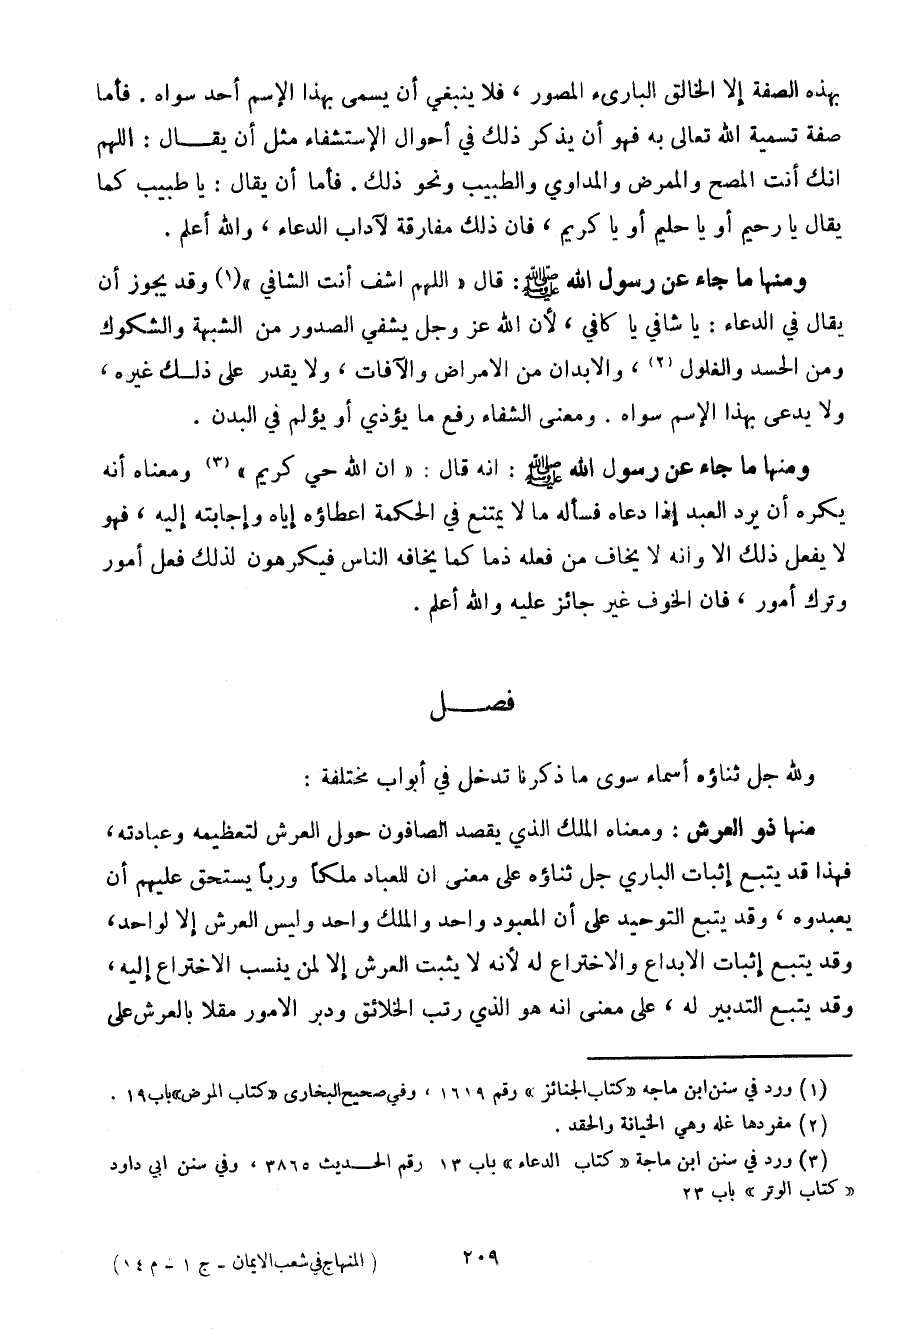 بهذه الصفة إلا الخالق البارىء المصور ، فلا ينبغي أن يسمى بهذا الإسم أحد سواه . فأما
صفة تسمية الله تعالى به فهو أن يذكر ذلك في أحوال الإستشفاء مثل أن يقـــال : اللهم
انك أنت المصح والممرض والمداوي والطبيب ونحو ذلك . فأما أن يقال : يا طبيب كما
يقال يا رحيم أو يا حليم أو يا كريم ، فان ذلك مفارقة لآداب الدعاء ، والله أعلم .
ومنها ما جاء عن رسول الله ﷺ : قال « اللهم اشف أنت الشافي »(١) وقد يجوز أن
يقال في الدعاء : يا شافي يا كافي ، لأن الله عز وجل يشفي الصدور من الشبهة والشكوك
ومن الحسد والغلول (٢) ، والابدان من الامراض والآفات ، ولا يقدر على ذلـك غيره ،
ولا يدعى بهذا الإسم سواه . ومعنى الشفاء رفع ما يؤذي أو يؤلم في البدن .
ومنها ما جاء عن رسول الله ﷺ : انه قال : « ان الله حي كريم » (٣) ومعناه أنه
يكره أن يرد العبد إذا دعاه فسأله ما لا يمتنع في الحكمة اعطاؤه إياه وإجابته إليه ، فهو
لا يفعل ذلك الا وانه لا يخاف من فعله ذما كما يخافه الناس فيكرهون لذلك فعل أمور
وترك أمور ، فان الخوف غير جائز عليه والله أعلم .
فصـــل
ولله جل ثناؤه أسماء سوى ما ذكرنا تدخل في أبواب مختلفة :
منها ذو العرش : ومعناه الملك الذي يقصد الصافون حول العرش لتعظيمه وعبادته،
فهذا قد يتبع إثبات الباري جل ثناؤه على معنى ان للعباد ملكاً ورباً يستحق عليهم أن
يعبدوه ، وقد يتبع التوحيد على أن المعبود واحد والملك واحد وليس العرش إلا لواحد،
وقد يتبع إثبات الابداع والاختراع له لأنه لا يثبت العرش إلا لمن ينسب الاختراع إليه،
وقد يتبع التدبير له ، على معنى انه هو الذي رتب الخلائق ودبر الامور مقلا بالعرش على
(١) ورد في سنن ابن ماجه «كتاب الجنائز » رقم ١٦١٩ ، وفي صحيح البخارى «كتاب المرض»باب ١٩ .
(٢) مفردها غله وهي الخيانة والحقد .
(٣) ورد في سنن ابن ماجة « كتاب الدعاء » باب ١٣ رقم الحـديث ٣٨٦٥ ، وفي سنن ابي داود
« كتاب الوتر » باب ٢٣
٢٠٩
( المنهاج في شعب الايمان - ج ١ - م ١٤ )